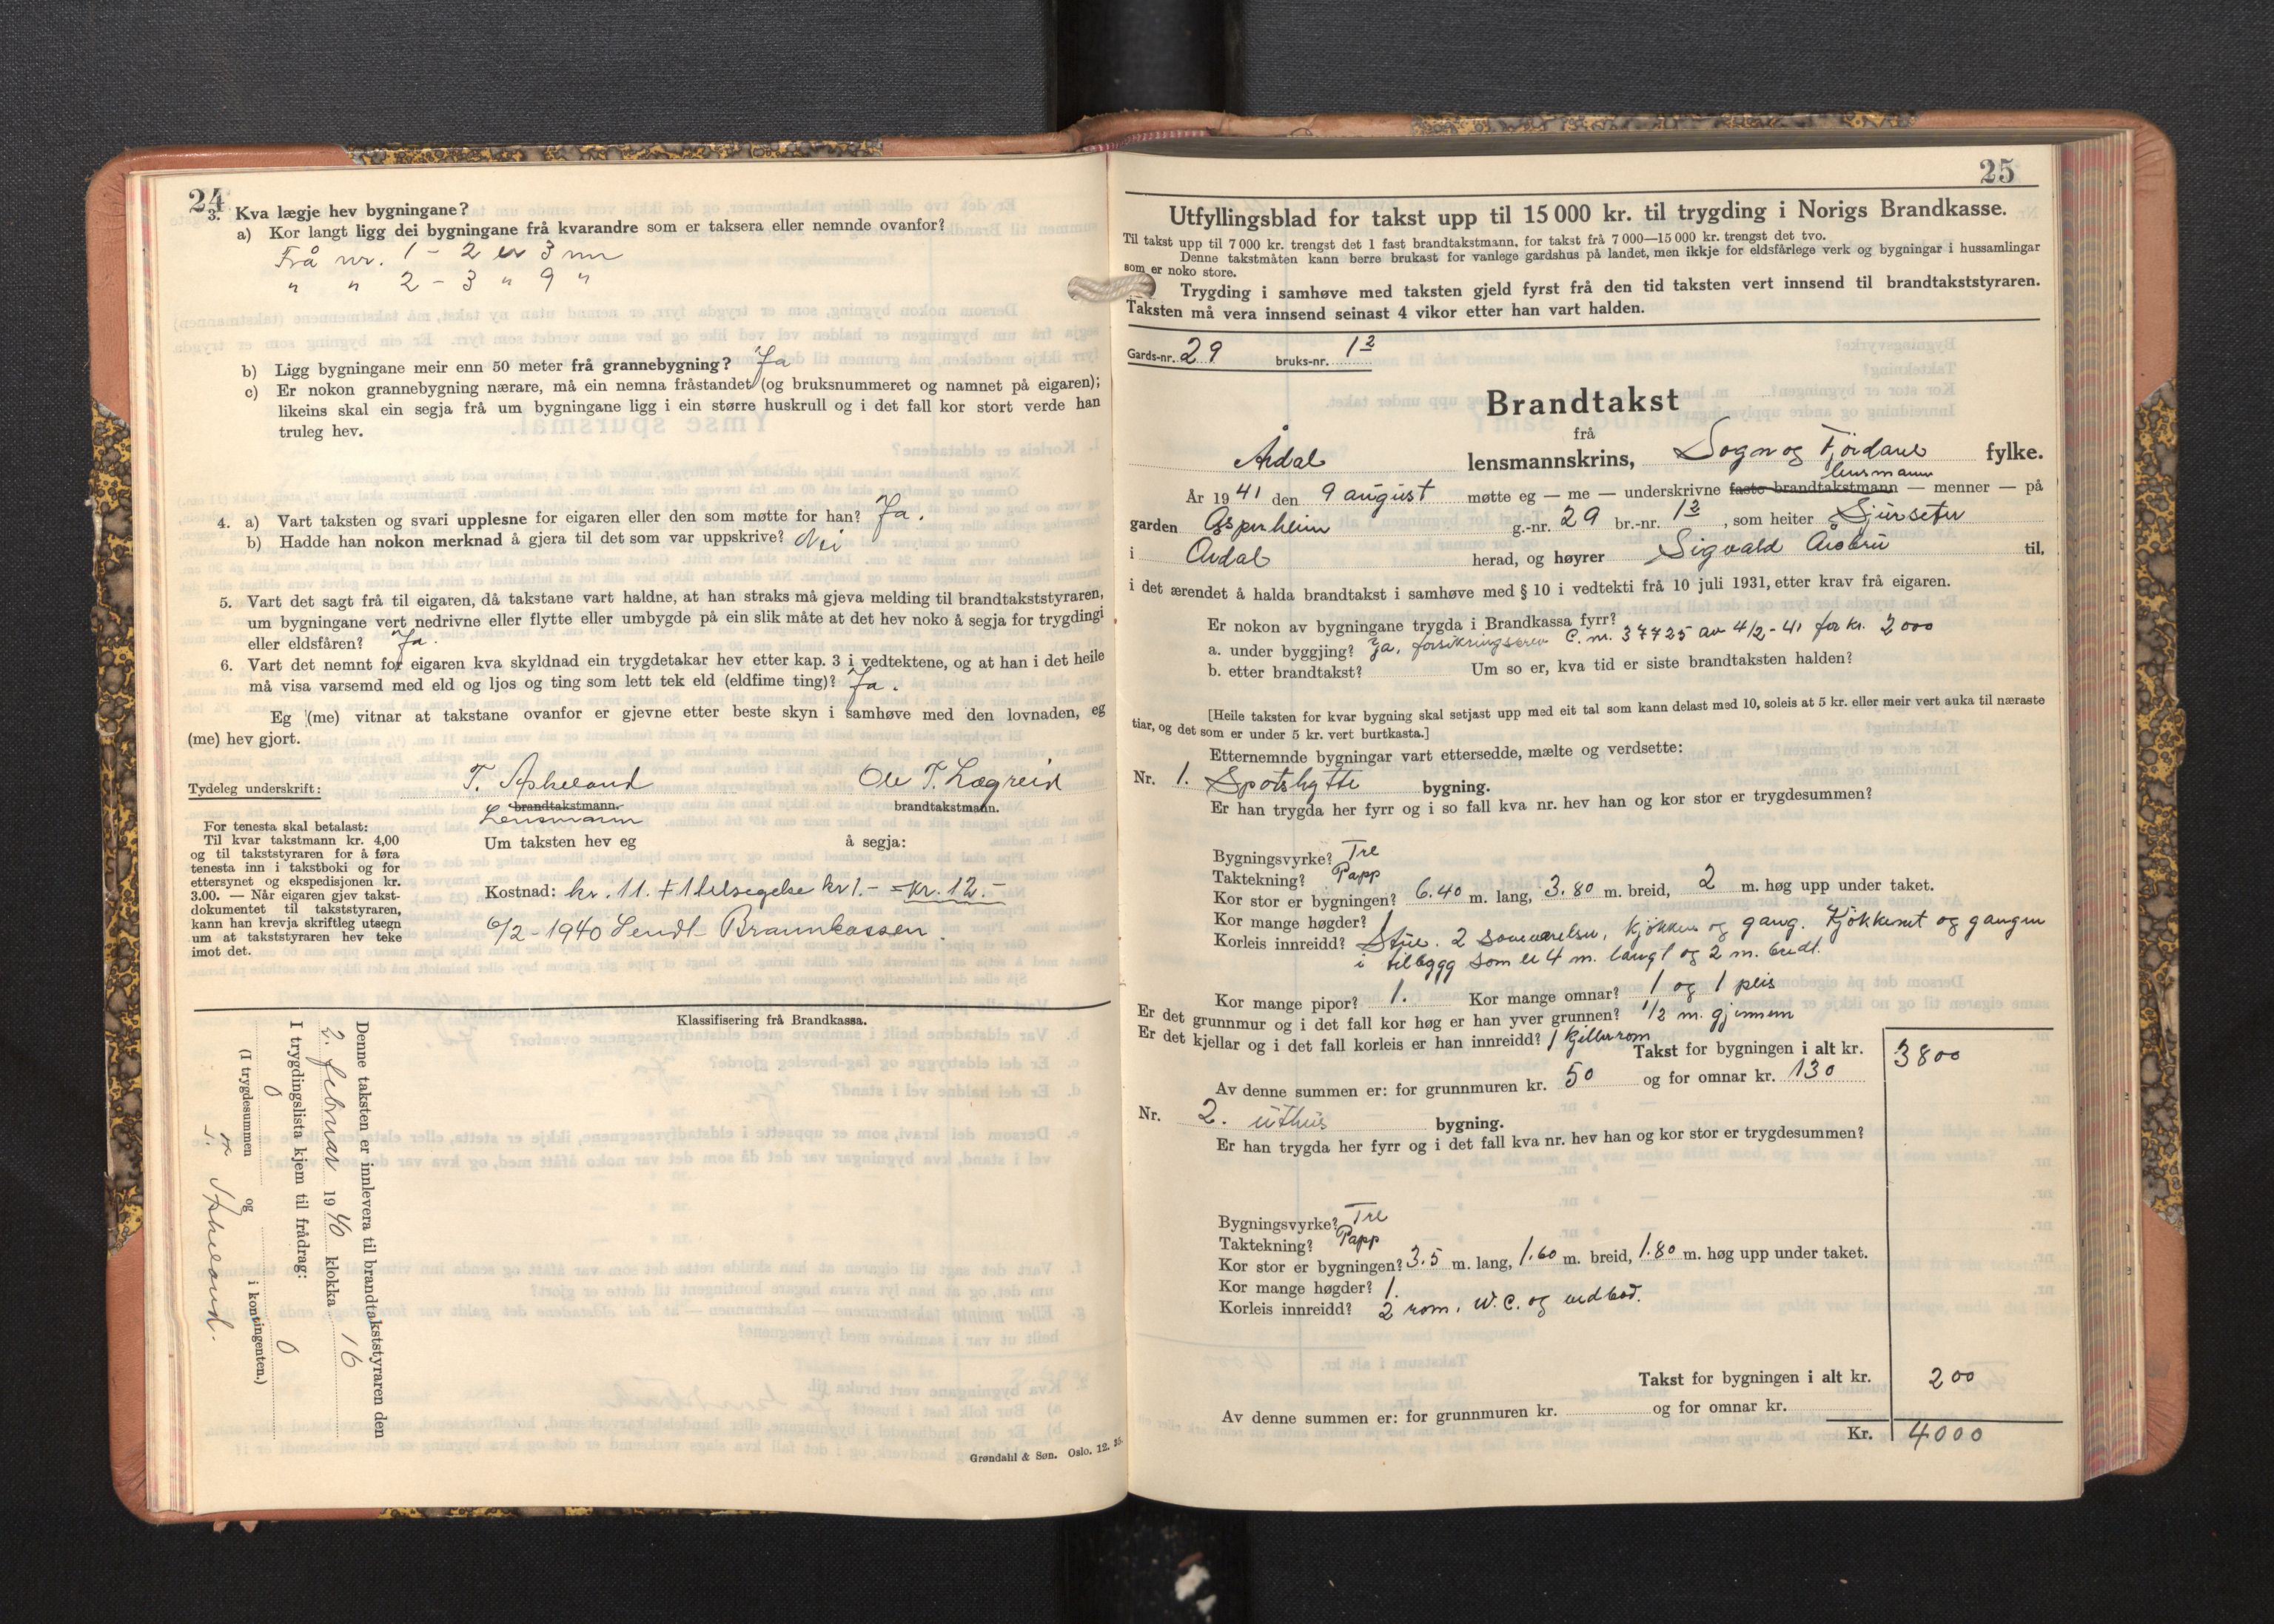 24
3. Kva lægje hev bygningane?
a) Kor langt ligg dei bygningane frå kvarandre som er taksera eller nemnde ovanfor?
Frå nr. 1 - 2 er 3 m
" " 2 - 3 " 9 "
b) Ligg bygningane meir enn 50 meter frå grannebygning? Ja
c) Er nokon grannebygning nærare, må ein nemna fråstandet (og bruksnummeret og namnet på eigaren);
likeins skal ein segja frå um bygningane ligg i ein større huskrull og i det fall kor stort verde han
truleg hev.
4. a) Vart taksten og svari upplesne for eigaren eller den som møtte for han? Ja.
b) Hadde han nokon merknad å gjera til det som var uppskrive? Nei
5. Vart det sagt frå til eigaren, då takstane vart haldne, at han straks må gjeva melding til brandtakststyraren,
um bygningane vert nedrivne eller flytte eller umbygde på ein slik måte at det hev noko å segja for trygdingi
eller eldsfåren? Ja.
6. Vart det nemnt for eigaren kva skyldnad ein trygdetakar hev etter kap. 3 i vedtektene, og at han i det heile
må visa varsemd med eld og ljos og ting som lett tek eld (eldfime ting)? Ja.
Eg (me) vitnar at takstane ovanfor er gjevne etter beste skyn i samhøve med den lovnaden, eg
(me) hev gjort.
Tydeleg underskrift: T. Apheland Ole T. Lægreid
brandtakstmann. brandtakstmann.
Lensmann
For tenesta skal betalast:
Til kvar takstmann kr. 4,00
og til takststyraren for å føra
tenesta inn i takstboki og for
ettersynet og ekspedisjonen kr.
3.00. — Når eigaren gjev takst-
dokumentet til takststyraren,
kann han krevja skriftleg utsegn
um at takststyraren hev teke
imot det.
Um taksten hev eg å segja:
Kostnad: kr. 11. + 1 tilsegelse kr 1.- = kr. 12.-
6/2 - 1940 Sendt Brannkassen.
Klassifisering frå Brandkassa.
Denne taksten er innlevera til brandtakststyraren den
2. februar 1940 klokka 16
I trygdingslista kjem til frådrag:
0 0
(I trygdesummen og i kontingenten.)
T. Apheland.
Grøndahl & Søn. Oslo. 12. 35.
25
Utfyllingsblad for takst upp til 15 000 kr. til trygding i Norigs Brandkasse.
Til takst upp til 7 000 kr. trengst det 1 fast brandtakstmann, for takst frå 7 000—15 000 kr. trengst det tvo.
Denne takstmåten kann berre brukast for vanlege gardshus på landet, men ikkje for eldsfårlege verk og bygningar i hussamlingar
som er noko store.
Trygding i samhøve med taksten gjeld fyrst frå den tid taksten vert innsend til brandtakststyraren.
Taksten må vera innsend seinast 4 vikor etter han vart halden.
Gards-nr. 29 bruks-nr. 12
Brandtakst
frå
Årdal lensmannskrins, Sogn og Fjordane fylke.
lensmann
År 1941 den 9 august møtte eg — me — underskrivne faste brandtakstmann — menner — på
garden Asperheim g.-nr. 29 br.-nr. 12, som heiter Sjurseter
i Årdal herad, og høyrer Sigvald til,
i det ærendet å halda brandtakst i samhøve med § 10 i vedtekti frå 10 juli 1931, etter krav frå eigaren.
Er nokon av bygningane trygda i Brandkassa fyrr?
a. under byggjing? Ja, forsikringsbrev C. nr. 37725 av 4/2-41 for kr. 2000
b. etter brandtakst? Um so er, kva tid er siste brandtaksten halden?
[Heile taksten for kvar bygning skal setjast upp med eit tal som kann delast med 10, soleis at 5 kr. eller meir vert auka til næraste
tiar, og det som er under 5 kr. vert burtkasta.]
Etternemnde bygningar vart ettersedde, mælte og verdsette:
Nr. 1. Spotshytte bygning.
Er han trygda her fyrr og i so fall kva nr. hev han og kor stor er trygdesummen?
Bygningsvyrke? Tre
Taktekning? Papp
Kor stor er bygningen? 6.40 m. lang, 3.80 m. breid, 2 m. høg upp under taket.
Kor mange høgder? 1
Korleis innreidd? Stue. 2 soveværelser, kjökken og gang. Kjökkenet og gangen
i tilbygg som er 4 m. langt og 2 m. bredt.
Kor mange pipor? 1. Kor mange omnar? 1 og 1 peis
Er det grunnmur og i det fall kor høg er han yver grunnen? 1/2 m. gjennem
Er det kjellar og i det fall korleis er han innreidd? 1 kjellerrom
Takst for bygningen i alt kr. 3800
Av denne summen er: for grunnmuren kr. 50 og for omnar kr. 130
Nr. 2. uthus bygning.
Er han trygda her fyrr og i det fall kva nr. hev han og kor stor er trygdesummen?
Bygningsvyrke? Tre
Taktekning? Papp
Kor stor er bygningen? 3.5 m. lang, 1.60 m. breid, 1.80 m. høg upp under taket.
Kor mange høgder? 1.
Korleis innreidd? 2 rom, W.C. og vedbod.
Takst for bygningen i alt kr. 200
Av denne summen er: for grunnmuren kr. og for omnar kr.
Kr. 4000